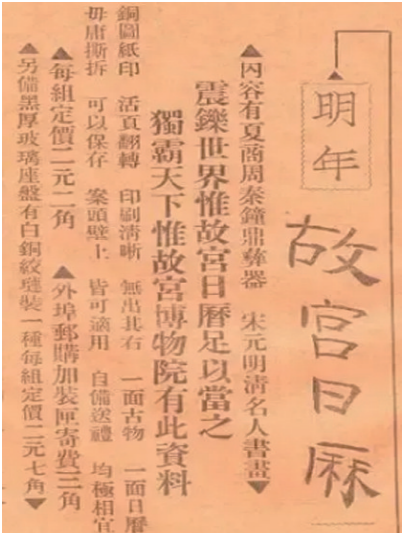 明年
故宮日厤
▲內容有夏商周秦鐘鼎彝器 宋元明清名人書畫▼
震鑠世界惟故宮日曆足以當之
獨霸天下惟故宮博物院有此資料
銅圖紙印 活頁翻轉 印刷清晰 無出其右 一面古物 一面日曆
毋庸撕拆 可以保存 案頭壁上 皆可適用 自備送禮 均極相宜
▲每組定價二元二角 ▲外埠郵購加裝匣寄費三角
▲另備黑厚玻璃座盤有白銅絞璉裝一種每組定價二元七角▼